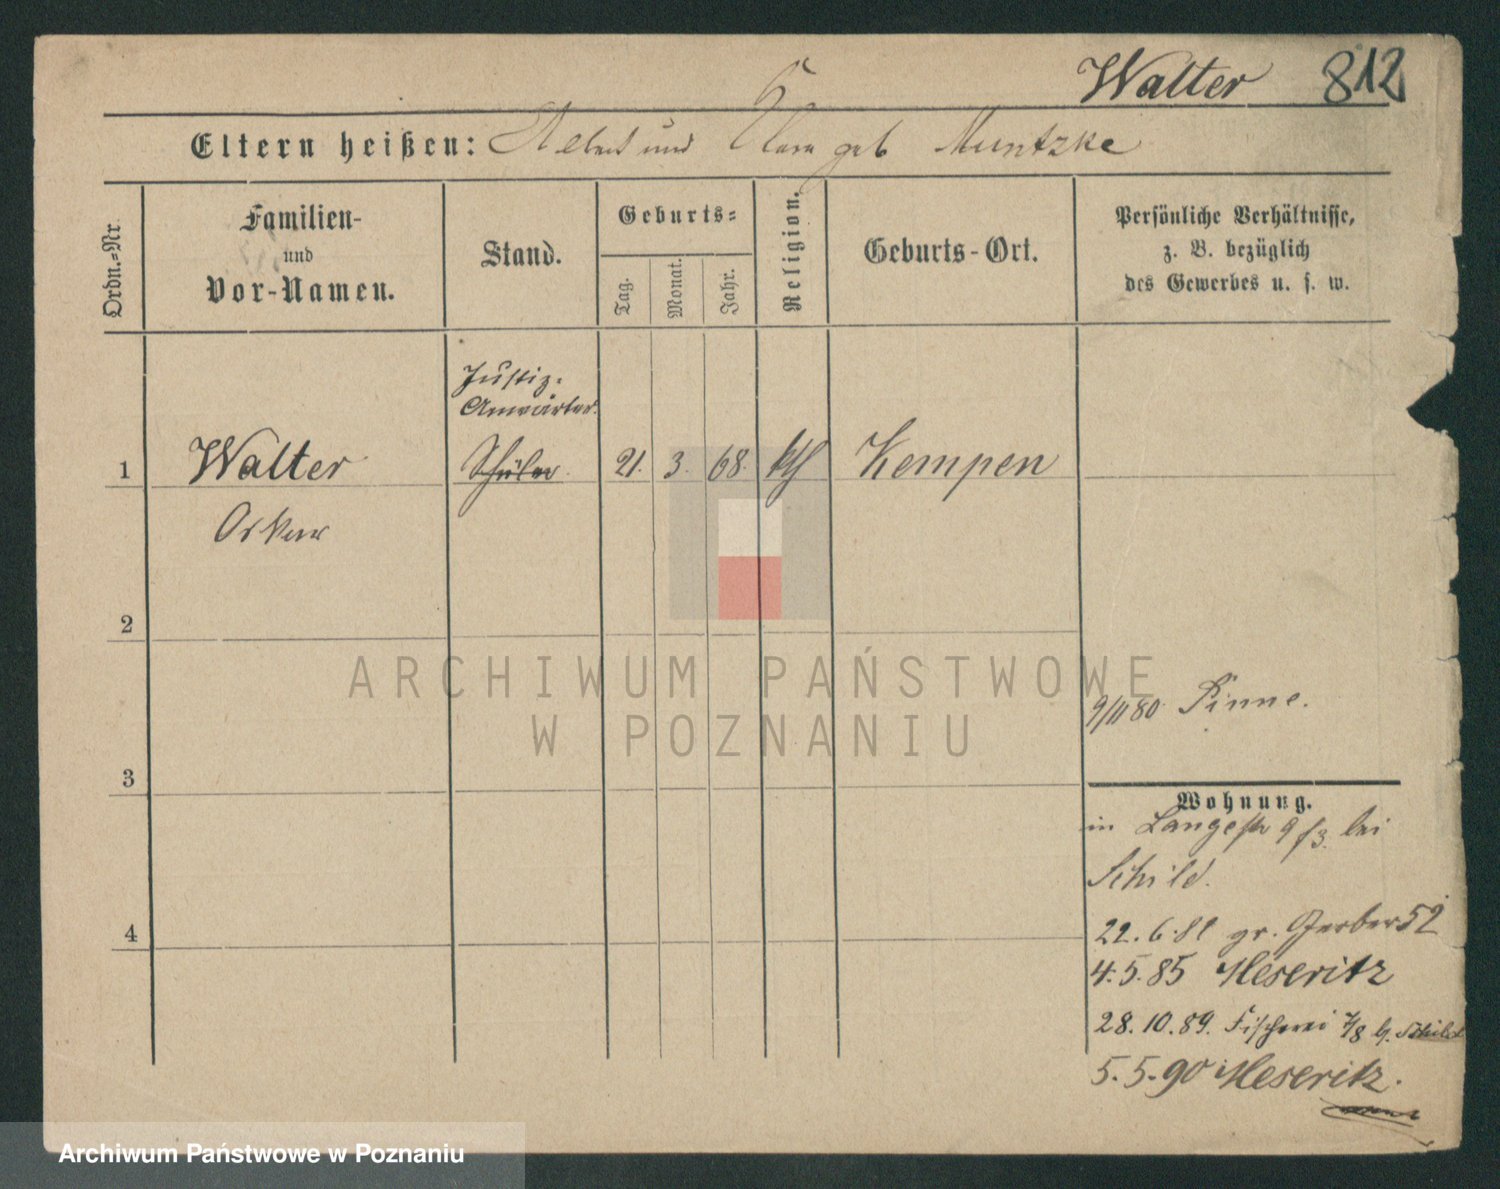 Walter 812
Eltern heißen: Albert und Clara geb Muntzke
Ordn.=Nr.
Familien-
und
Vor-Namen.
Stand.
Geburts=
Tag.
Monat.
Jahr.
Religion.
Geburts-Ort.
Persönliche Verhältnisse,
z. B. bezüglich
des Gewerbes u. s. w.
Justiz-
Anwärter.
1 Walter Schüler 21. 3. 68. kth Kempen
Oskar
2
3
4
9/11 80 Pinne.
Wohnung.
in Langestr 9 f3. bei
Schild.
22. 6. 81 gr. Gerber 52
4. 5. 85 Meseritz
28. 10. 89. Fischerei 7/8 b. Schild
5. 5. 90 Meseritz.
ARCHIWUM PAŃSTWOWE
W POZNANIU
Archiwum Państwowe w Poznaniu